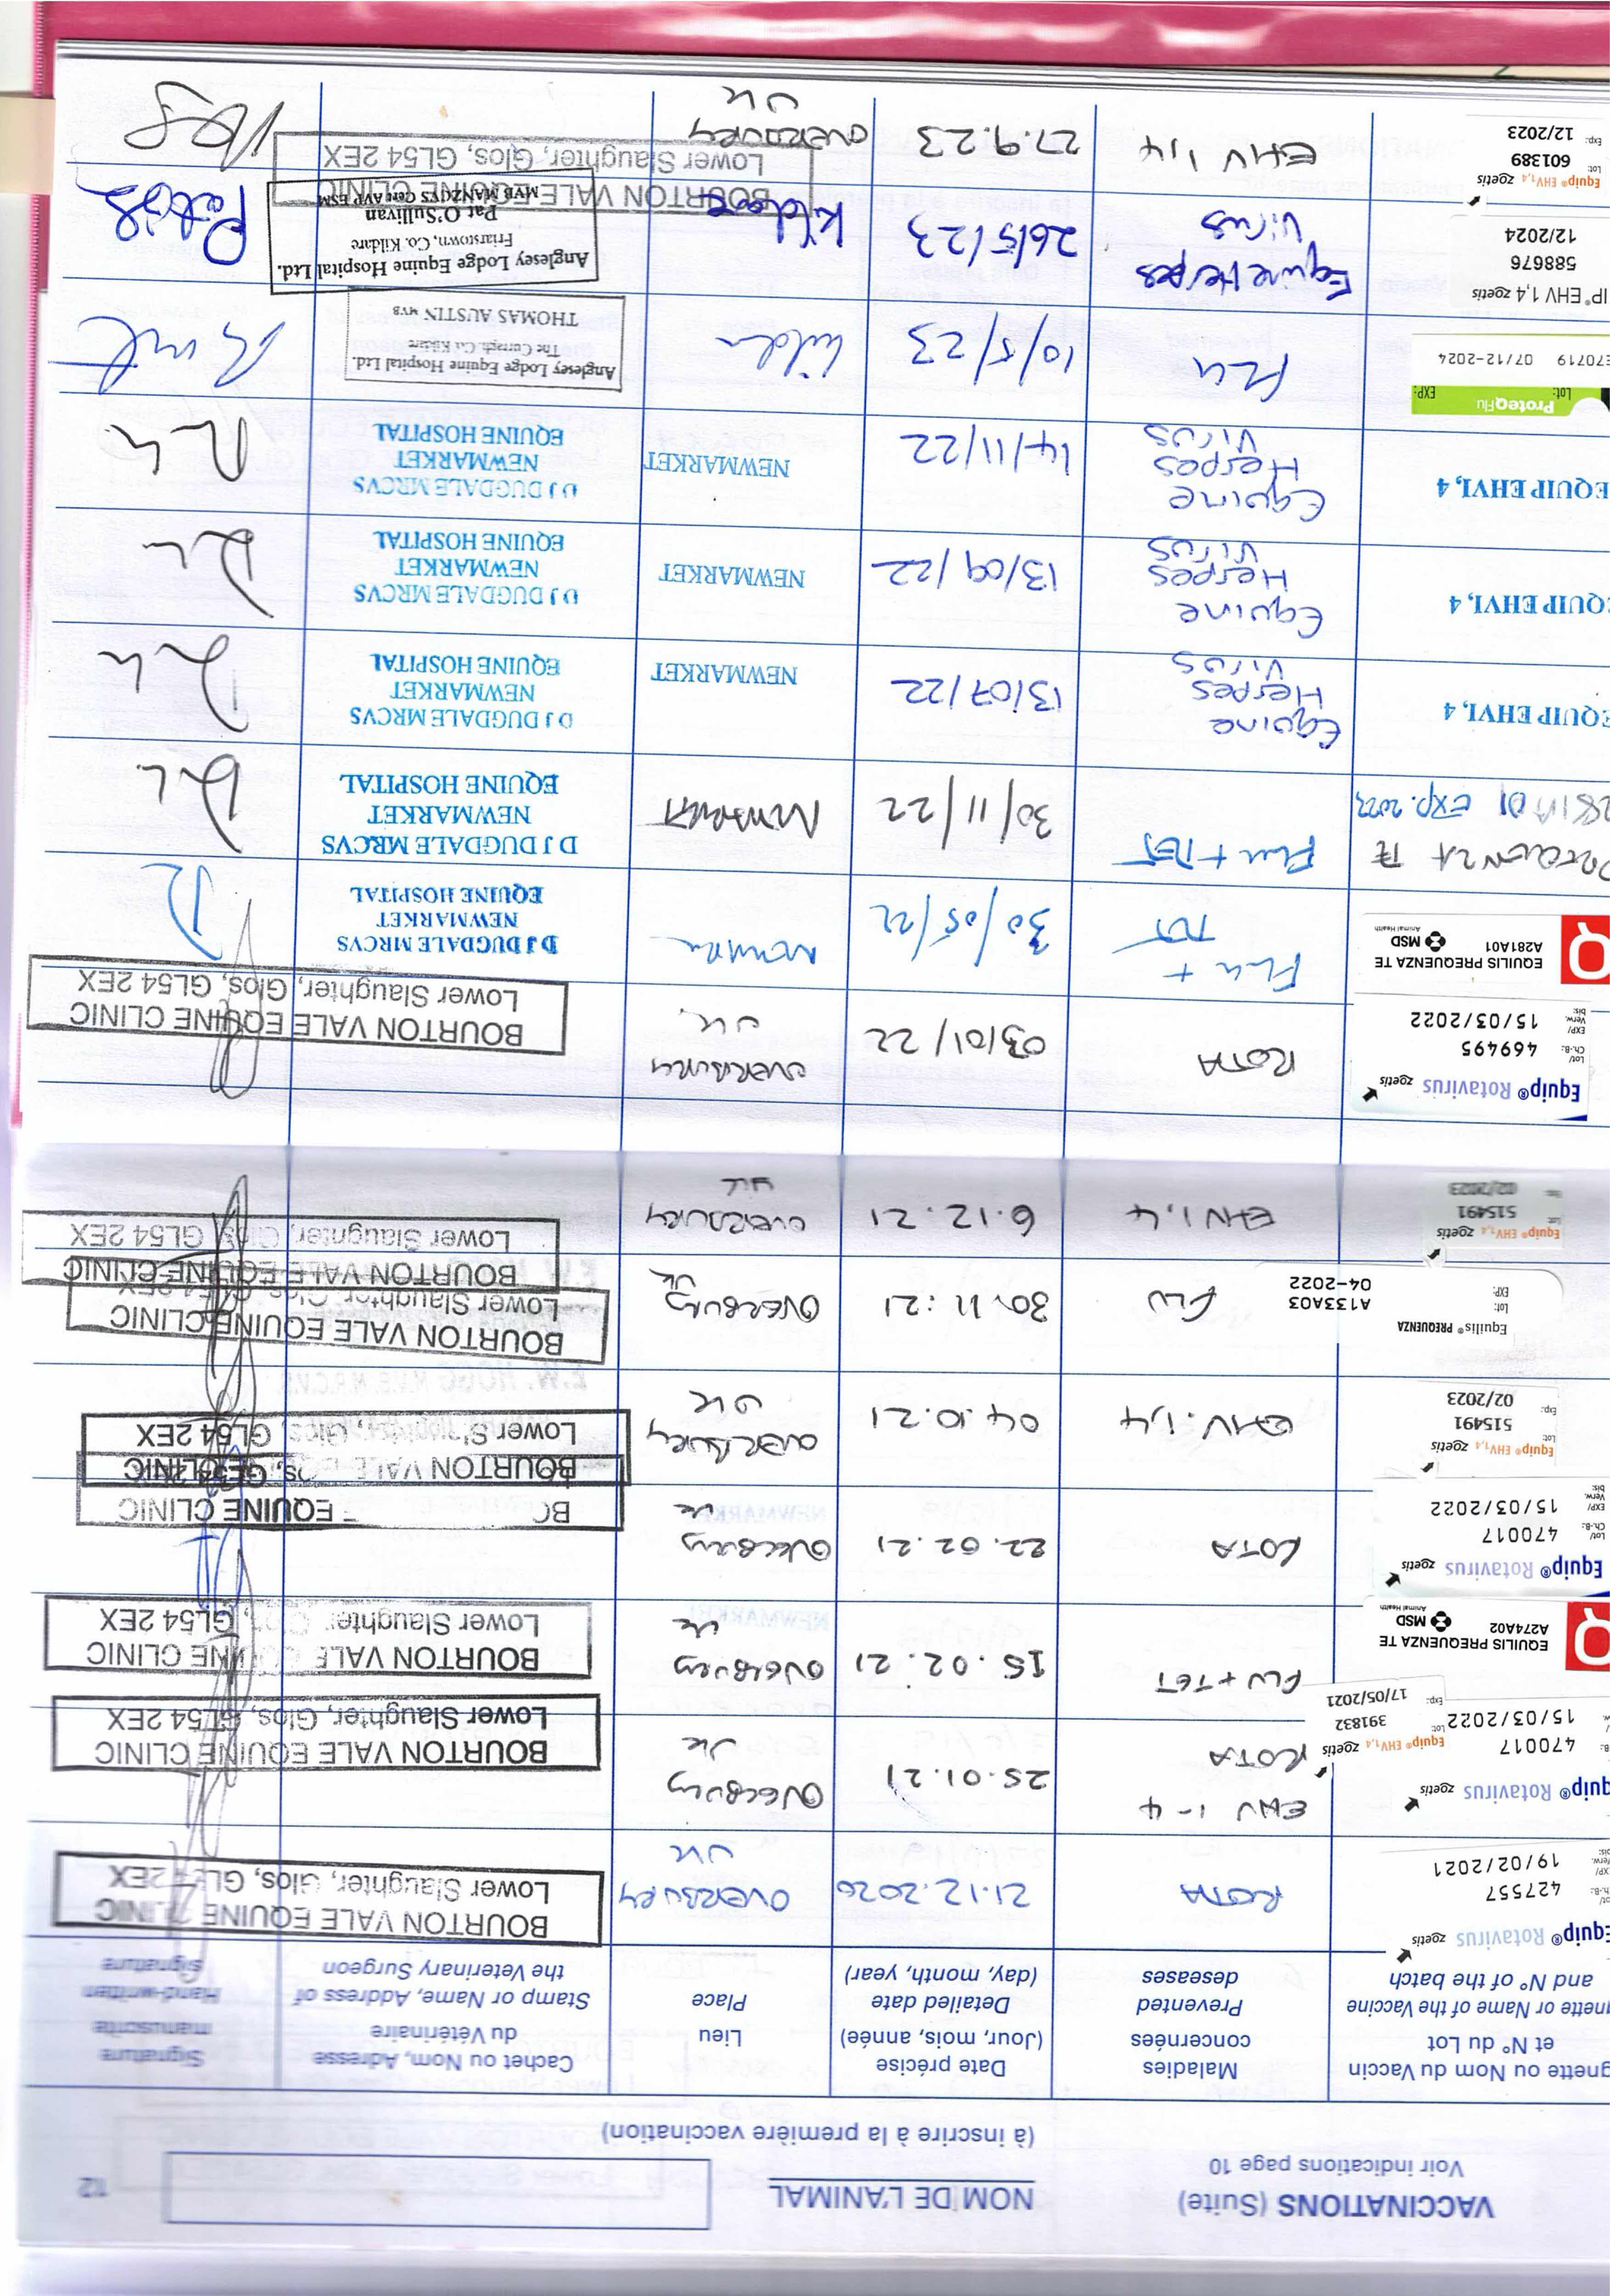 VACCINATIONS (Suite)
Voir indications page 10
NOM DE L'ANIMAL
(à inscrire à la première vaccination)
12
gnette ou Nom du Vaccin
et N° du Lot
gnette or Name of the Vaccine
and N° of the batch
Maladies
concernées
Prevented
deseases
Date précise
(Jour, mois, année)
Detailed date
(day, month, year)
Lieu
Place
Cachet ou Nom, Adresse
du Vétérinaire
Stamp or Name, Address of
the Veterinary Surgeon
Signature
manuscrite
Hand-written
signature
Equip® Rotavirus zoetis
427557
19/02/2021
ROTA
21.12.2020
OVERBURY
UK
BOURTON VALE EQUINE CLINIC
Lower Slaughter, Glos, GL54 2EX
quip® Rotavirus zoetis
470017
15/03/2022
Equip® EHV1,4 zoetis
Lot: 391832
Exp: 17/05/2021
EHV 1-4
ROTA
25.01.21
OVERBURY
UK
BOURTON VALE EQUINE CLINIC
Lower Slaughter, Glos, GL54 2EX
EQUILIS PREQUENZA TE
A274A02
MSD
Animal Health
FLU + TET
15.02.21
OVERBURY
UK
BOURTON VALE EQUINE CLINIC
Lower Slaughter, Glos, GL54 2EX
Equip® Rotavirus zoetis
Lot/ Ch.-B.: 470017
EXP/ Verw. bis: 15/03/2022
ROTA
22.02.21
OVERBURY
UK
EQUINE CLINIC
Equip® EHV1,4 zoetis
Lot: 515491
Exp: 02/2023
EHV.1,4
04.10.21
OVERBURY
UK
BOURTON VALE
Lower Glos, GL54 2EX
Equilis® PREQUENZA
Lot: A133A03
EXP: 04-2022
FLU
30.11.21
OVERBURY
UK
BOURTON VALE EQUINE CLINIC
Lower Slaughter
Equip® EHV1,4 zoetis
Lot: 515491
Exp: 02/2023
EHV1,4
6.12.21
OVERBURY
UK
BOURTON VALE EQUINE CLINIC
Lower Slaughter, Glos, GL54 2EX
Equip® Rotavirus zoetis
Lot/ Ch.-B.: 469495
EXP/ Verw. bis: 15/03/2022
ROTA
03/01/22
OVERBURY
UK
BOURTON VALE EQUINE CLINIC
Lower Slaughter, Glos, GL54 2EX
EQUILIS PREQUENZA TE
A281A01
MSD
Animal Health
Flu +
TET
30/05/22
D J DUGDALE MRCVS
NEWMARKET
EQUINE HOSPITAL
PREQUENZA TE
EXP. 2023
Flu + TET
30/11/22
Newmarket
D J DUGDALE MRCVS
NEWMARKET
EQUINE HOSPITAL
EQUIP EHV1, 4
Equine
Herpes
Virus
13/07/22
NEWMARKET
D J DUGDALE MRCVS
NEWMARKET
EQUINE HOSPITAL
EQUIP EHV1, 4
Equine
Herpes
Virus
13/09/22
NEWMARKET
D J DUGDALE MRCVS
NEWMARKET
EQUINE HOSPITAL
EQUIP EHV1, 4
Equine
Herpes
Virus
14/11/22
NEWMARKET
D J DUGDALE MRCVS
NEWMARKET
EQUINE HOSPITAL
ProteqFlu
Lot: EXP:
E70719 07/12-2024
Flu
10/5/23
Kildare
Anglesey Lodge Equine Hospital Ltd.
The Curragh, Co. Kildare
THOMAS AUSTIN MVB
IP® EHV 1,4 zoetis
588676
12/2024
Equine Herpes
Virus
26/5/23
Kildare
Anglesey Lodge Equine Hospital Ltd.
Friarstown, Co. Kildare
Pat O'Sullivan
MVB MANZCVS Cert AVP ESM
Equip® EHV1,4 zoetis
Lot: 601389
Exp: 12/2023
EHV 1,4
27.9.23
OVERBURY
UK
BOURTON VALE EQUINE CLINIC
Lower Slaughter, Glos, GL54 2EX